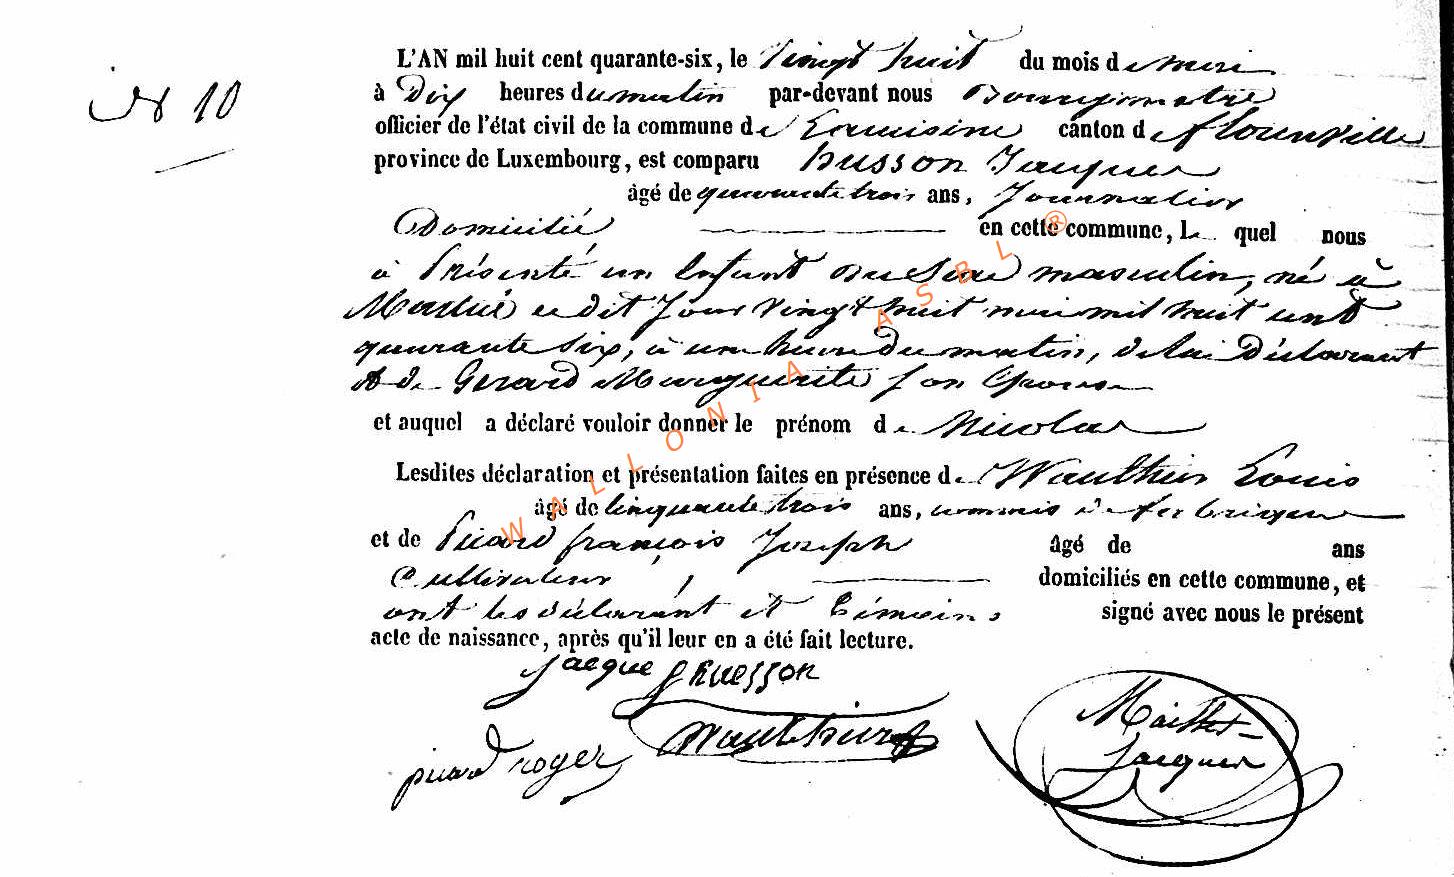 N 10
L'AN mil huit cent quarante-six, le vingt huit du mois de mai
à Dix heures du matin par-devant nous Bourgmestre
officier de l'état civil de la commune de canton de florenville
province de Luxembourg, est comparu husson Jacques
âgé de quarante trois ans, Journalier
Domicilié en cette commune, Le quel nous
a Présenté un Enfant du Sexe masculin, né à
ce dit Jour vingt huit mai mil huit cent
quarante six, à une heure du matin, de lui Déclarant
et de Gerard Marguerite son Epouse
et auquel a déclaré vouloir donner le prénom de Nicolas
Lesdites déclaration et présentation faites en présence de Wauthier Louis
âgé de cinquante trois ans, commis de fabrique
et de Picard françois Joseph âgé de ans
Cultivateur, domiciliés en cette commune, et
ont les déclarant et témoins signé avec nous le présent
acte de naissance, après qu'il leur en a été fait lecture.
jacque husson
picard roger Wauthier
Maillet
Jacques
WALLONIA ASBL ®